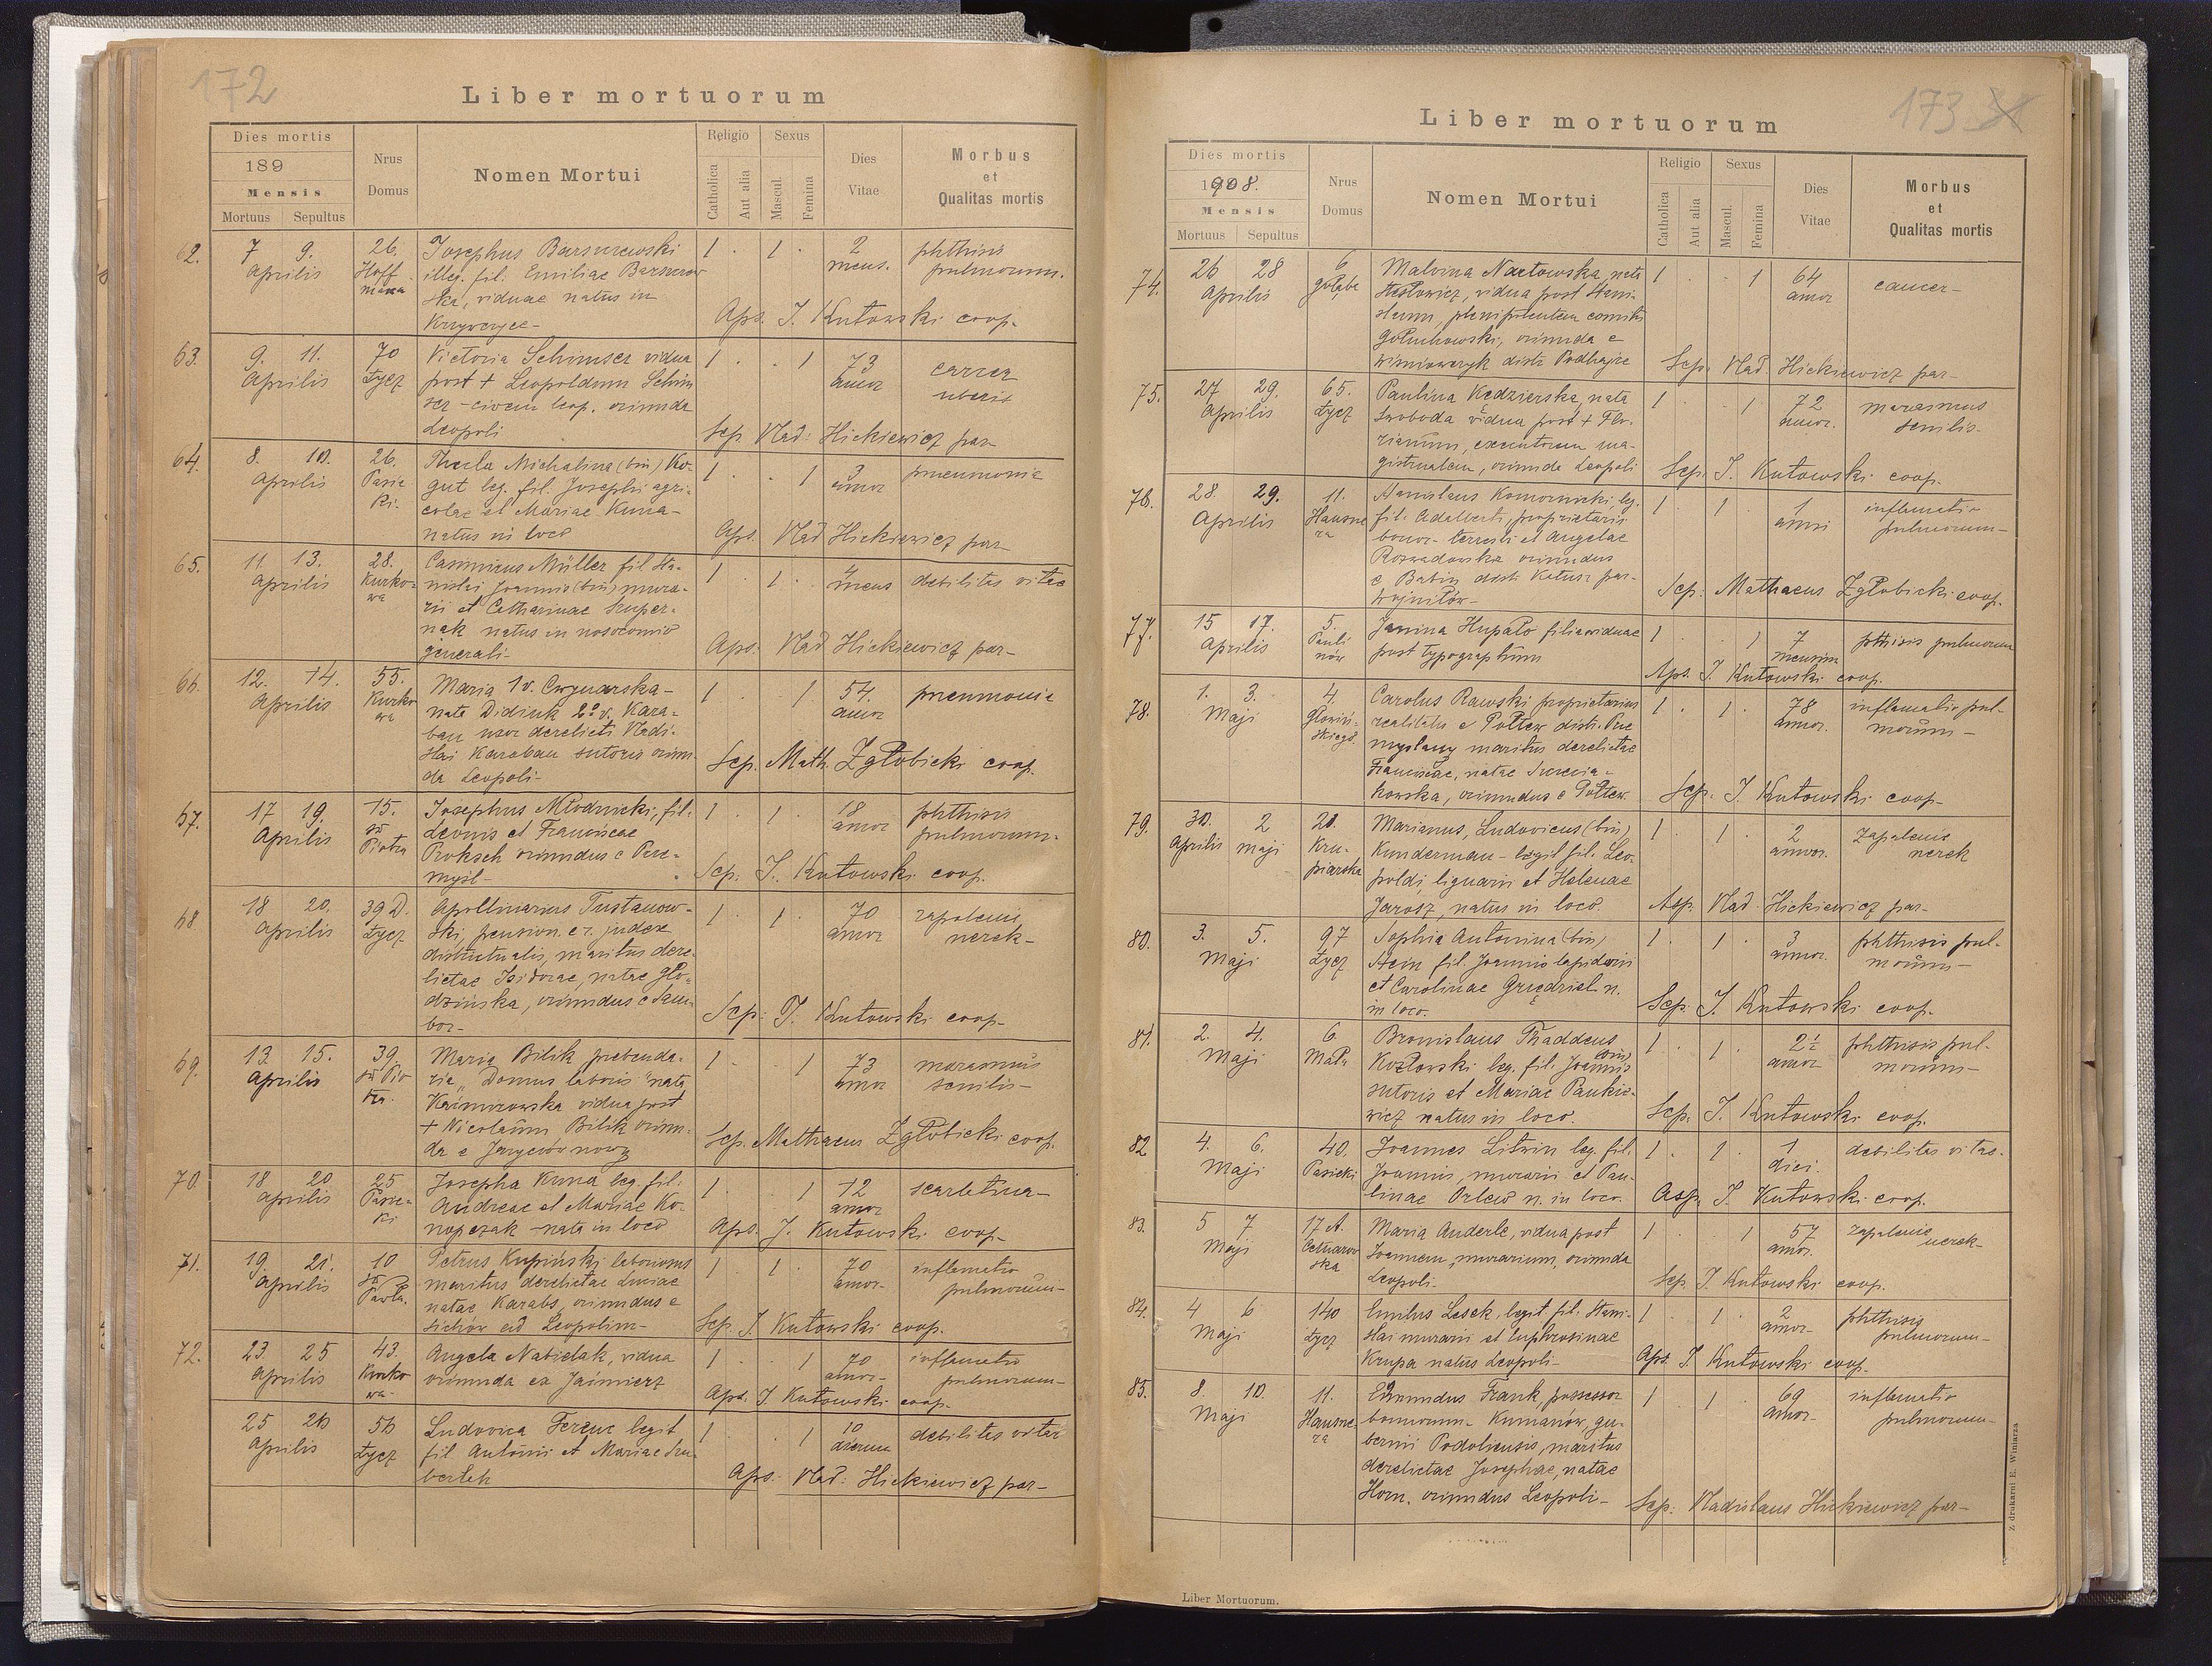 172
Liber mortuorum
Dies mortis
189
Mensis
Mortuus Sepultus
Nrus
Domus
Nomen Mortui
Religio
Catholica
Aut alia
Sexus
Mascul.
Femina
Dies
Vitae
Morbus
et
Qualitas mortis
62. 7 9. 26. Josephus Barszczewski 1 · 1 · 2 phthisis
Aprilis Hoff illeg. fil. Emiliae mens. pulmorum.
mana ska, viduae natus in
Krzywczyce-
Aps. J. Kutowski coop.
63. 9. 11. 70 Victoria Schimser vidua 1 · · 1 73
Aprilis Łycz post + Leopoldum Schim annor uberis
ser - civem leop. oriunda
Leopoli
Scp. Vlad: Hickiewicz par-
64. 8. 10. 26. Thecla Michalina (bin) Ko- 1 · · 1 3 pneumonia
Aprilis Pasie gut leg. fil. Josephi agri- annor
ki. colae et Mariae Kuna-
natus in loco
Aps. Vlad Hickiewicz par-
65. 11. 13. 28. Casimirus Müller fil Sta- 1 · 1 · 4 debilitas vitae
Aprilis Kurko- nislai Joannis (bin) mura- mens
wa rii et Catharinae Szuper-
nak natus in nosocomio
generali-
Aps. Vlad Hickiewicz par-
66. 12. 14. 55. Maria 1 v. Cwynarska- 1 · · 1 54. pneumonia
Aprilis Kurko nata Didiuk 2º v. Kara- annor
wa ban uxor derelicti Vladi-
slai Karaban sutoris oriun
da Leopoli-
Scp. Math. Zgłobicki coop.
67. 17 19. 15. Josephus Młodnicki, fil. 1 · 1 · 18 phthisis
Aprilis św Leonis et Franciscae annor pulmorum.
Piotra Proksch oriundus e Prze-
myśl-
Scp. J. Kutowski coop.
68 18 20. 39 D. Apollinarius Tustanow- 1 · 1 · 70 zapalenie
Aprilis Łycz ski, pension. c. r. judex annor nerek-
districtualis, maritus dere-
lictae Isidorae, natae Gło-
dzińska, oriundus e Sam-
bor-
Scp: J. Kutowski coop-
69. 13. 15. 39. Maria Bilik prebenda- 1 · · 1 73 marasmus
Aprilis św Pio ria "Domus laboris" nata annor senilis-
tra. Kaźmirowska vidua post
+ Nicolaum Bilik oriun-
da e Jaryczów nowy
Scp. Mathaeus Zgłobicki coop.
70. 18 20 25 Josepha Kuna leg. fil. 1 · · 1 12 scarlatina-
Aprilis Pasie- Andreae et Mariae Ko- annor
ki nopczak - nata in loco
Aps. J. Kutowski coop-
71. 19. 21. 10 Petrus Kupiński laboriosus 1 · 1 · 70 inflamatio
Aprilis św maritus derelictae Luciae annor- pulmorum-
Pawła. natae Karabs, oriundus e
Sichów ad Leopolim-
Scp. J. Kutowski coop.
72. 23 25 43. Angela Nabielak, vidua 1 · · 1 70 inflamatio
Aprilis Kurko oriunda ex Jaśmierz annor- pulmorum-
wa-
Aps. J. Kutowski coop-
25 26 56 Ludovica Ferenc legit 1 · · 1 10 debilitas vitae
Aprilis Łycz fil Antonii et Mariae dierum
Aps. Vlad: Hickiewicz par-
173
Liber mortuorum
Dies mortis
1908.
Mensis
Mortuus Sepultus
Nrus
Domus
Nomen Mortui
Religio
Catholica
Aut alia
Sexus
Mascul.
Femina
Dies
Vitae
Morbus
et
Qualitas mortis
74. 26 28 6 Malvina nata 1 · · 1 64 cancer-
Aprilis gołąba vidua post Stani- annor
slaum, plenipotentem comitis
Gołuchowski, oriunda e
Wiśniowczyk distr Podhajce
Scp. Vlad. Hickiewicz par-
75. 27 29. 65. Paulina Kędzierska, nata 1 · · 1 72 marasmus
Aprilis Łycz Swoboda vidua post + Flo- annor. senilis-
rianum, executorem ma-
gistrualem, oriunda Leopoli
Scp. J. Kutowski coop.
76. 28. 29. 11. Stanislaus Komornicki, leg. 1 · 1 · 1 inflamatio
Aprilis Hausne fil. Adalberti, proprietarii anni pulmorum-
ra bonor. terrestri et Angelae
Rozwadowska oriundus
e Babin distr. Kałusz par-
Wojniłów-
Scp: Mathaeus Zgłobicki coop.
77. 15 17. 5. Janina Hupało filia viduae 1 · · 1 7 phtisis pulmorum
Aprilis Pauli post typographum mensium
nów
Aps. J. Kutowski coop.
78. 1. 3. 4 Carolus Rawski proprietarius 1 · 1 · 78 inflamatio pul-
Maji Głowiń- realitatis e Połtew distr. Prze annor. morum-
skiego. myslany maritus derelictae
Franciscae, natae
kowska, oriundus e Połtew.
Scp. J. Kutowski coop-
79. 30. 2 21. Marianus, Ludovicus (bin) 1 · 1 · 2 zapalenie
Aprilis maji Kru- Kunderman - legit fil. Leo- annor. nerek
piarska poldi, lignarii et Helenae
Jarosz, natus in loco.
Asp. Vlad. Hickiewicz par-
80. 3. 5. 97 Sophia Antonina (bin) 1 · 1 · 3 phthisis pul-
Maji Łycz Stein fil. Joannis lapidarii annor. morum-
et Carolinae n.
in loco.
Scp. J. Kutowski coop.
81. 2. 4. 6. Bronislaus Thaddeus 1 · 1 · 2½ phthisis pul-
Maji Mała Kozłowski leg. fil. Joannis (bin) annor morum-
sutoris et Mariae Pankie-
wicz natus in loco.
Scp. J. Kutowski coop.
82 4. 6. 40. Joannes Litwin leg. fil. 1 · 1 · 1 debilitas vitae.
Maji Pasieki Joannis, murarii et Pau- diei.
linae Orlew n. in loco.
Asp. J. Kutowski coop.
83. 5 7 17 A. Maria Anderle, vidua post 1 · · 1 57 zapalenie
Maji Joannem, murarium, oriunda annor. nerek-
ska Leopoli-
Scp J. Kutowski coop.
84. 4 6 140 Emilus Lesek, legit. fil. Stani- 1 · 1 · 2 phthisis
Maji Łycz slai murarii et Euphrosinae annor- pulmorum-
Krupa natus Leopoli-
Aps. J. Kutowski coop-
85. 8. 10. 11. Edmundus Frank, possessor 1 · 1 · 69 inflamatio
Maji Hausne bonorum Kumanów, gu- annor- pulmorum-
ra bernii Podoliensis, maritus
derelictae Josephae, natae
Horn, oriundus Leopoli-
Scp: Vladislaus Hickiewicz par-
Z drukarni E. Winiarza
Liber Mortuorum.